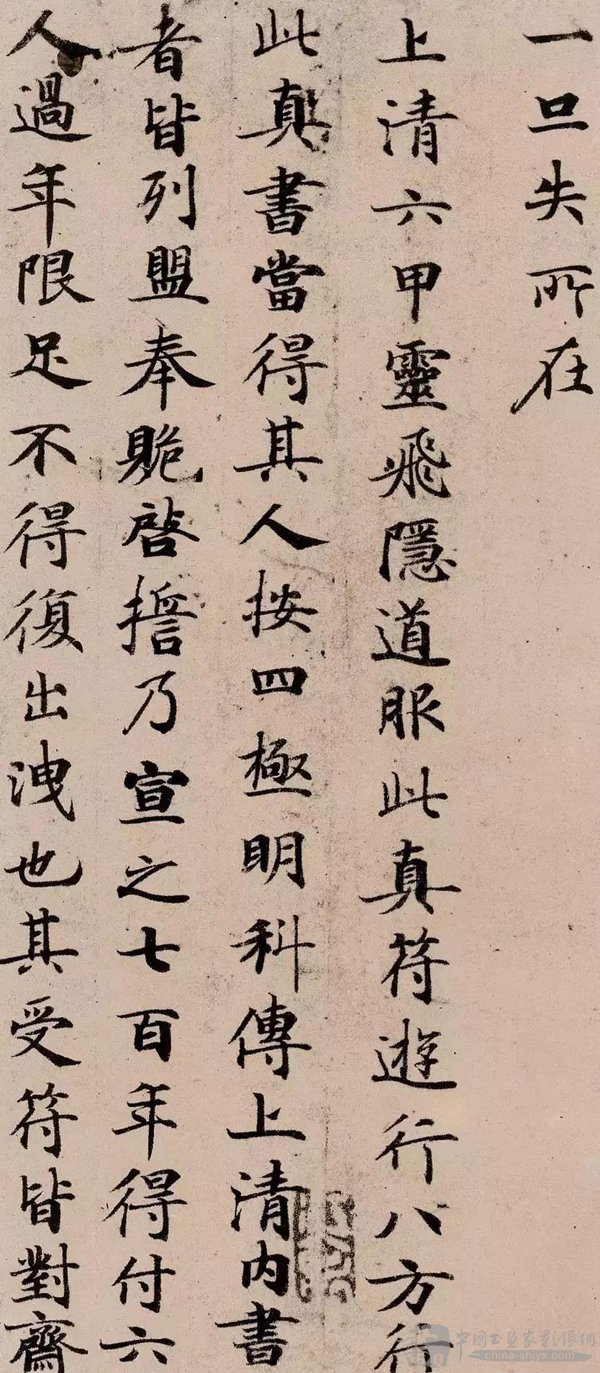 一旦失所在
上清六甲靈飛隱道服此真符遊行八方行
此真書當得其人按四極明科傳上清內書
者皆列盟奉貤啓擔乃宣之七百年得付六
人過年限足不得復出洩也其受符皆對齋
中国工艺家影像網
china-shjyx.com